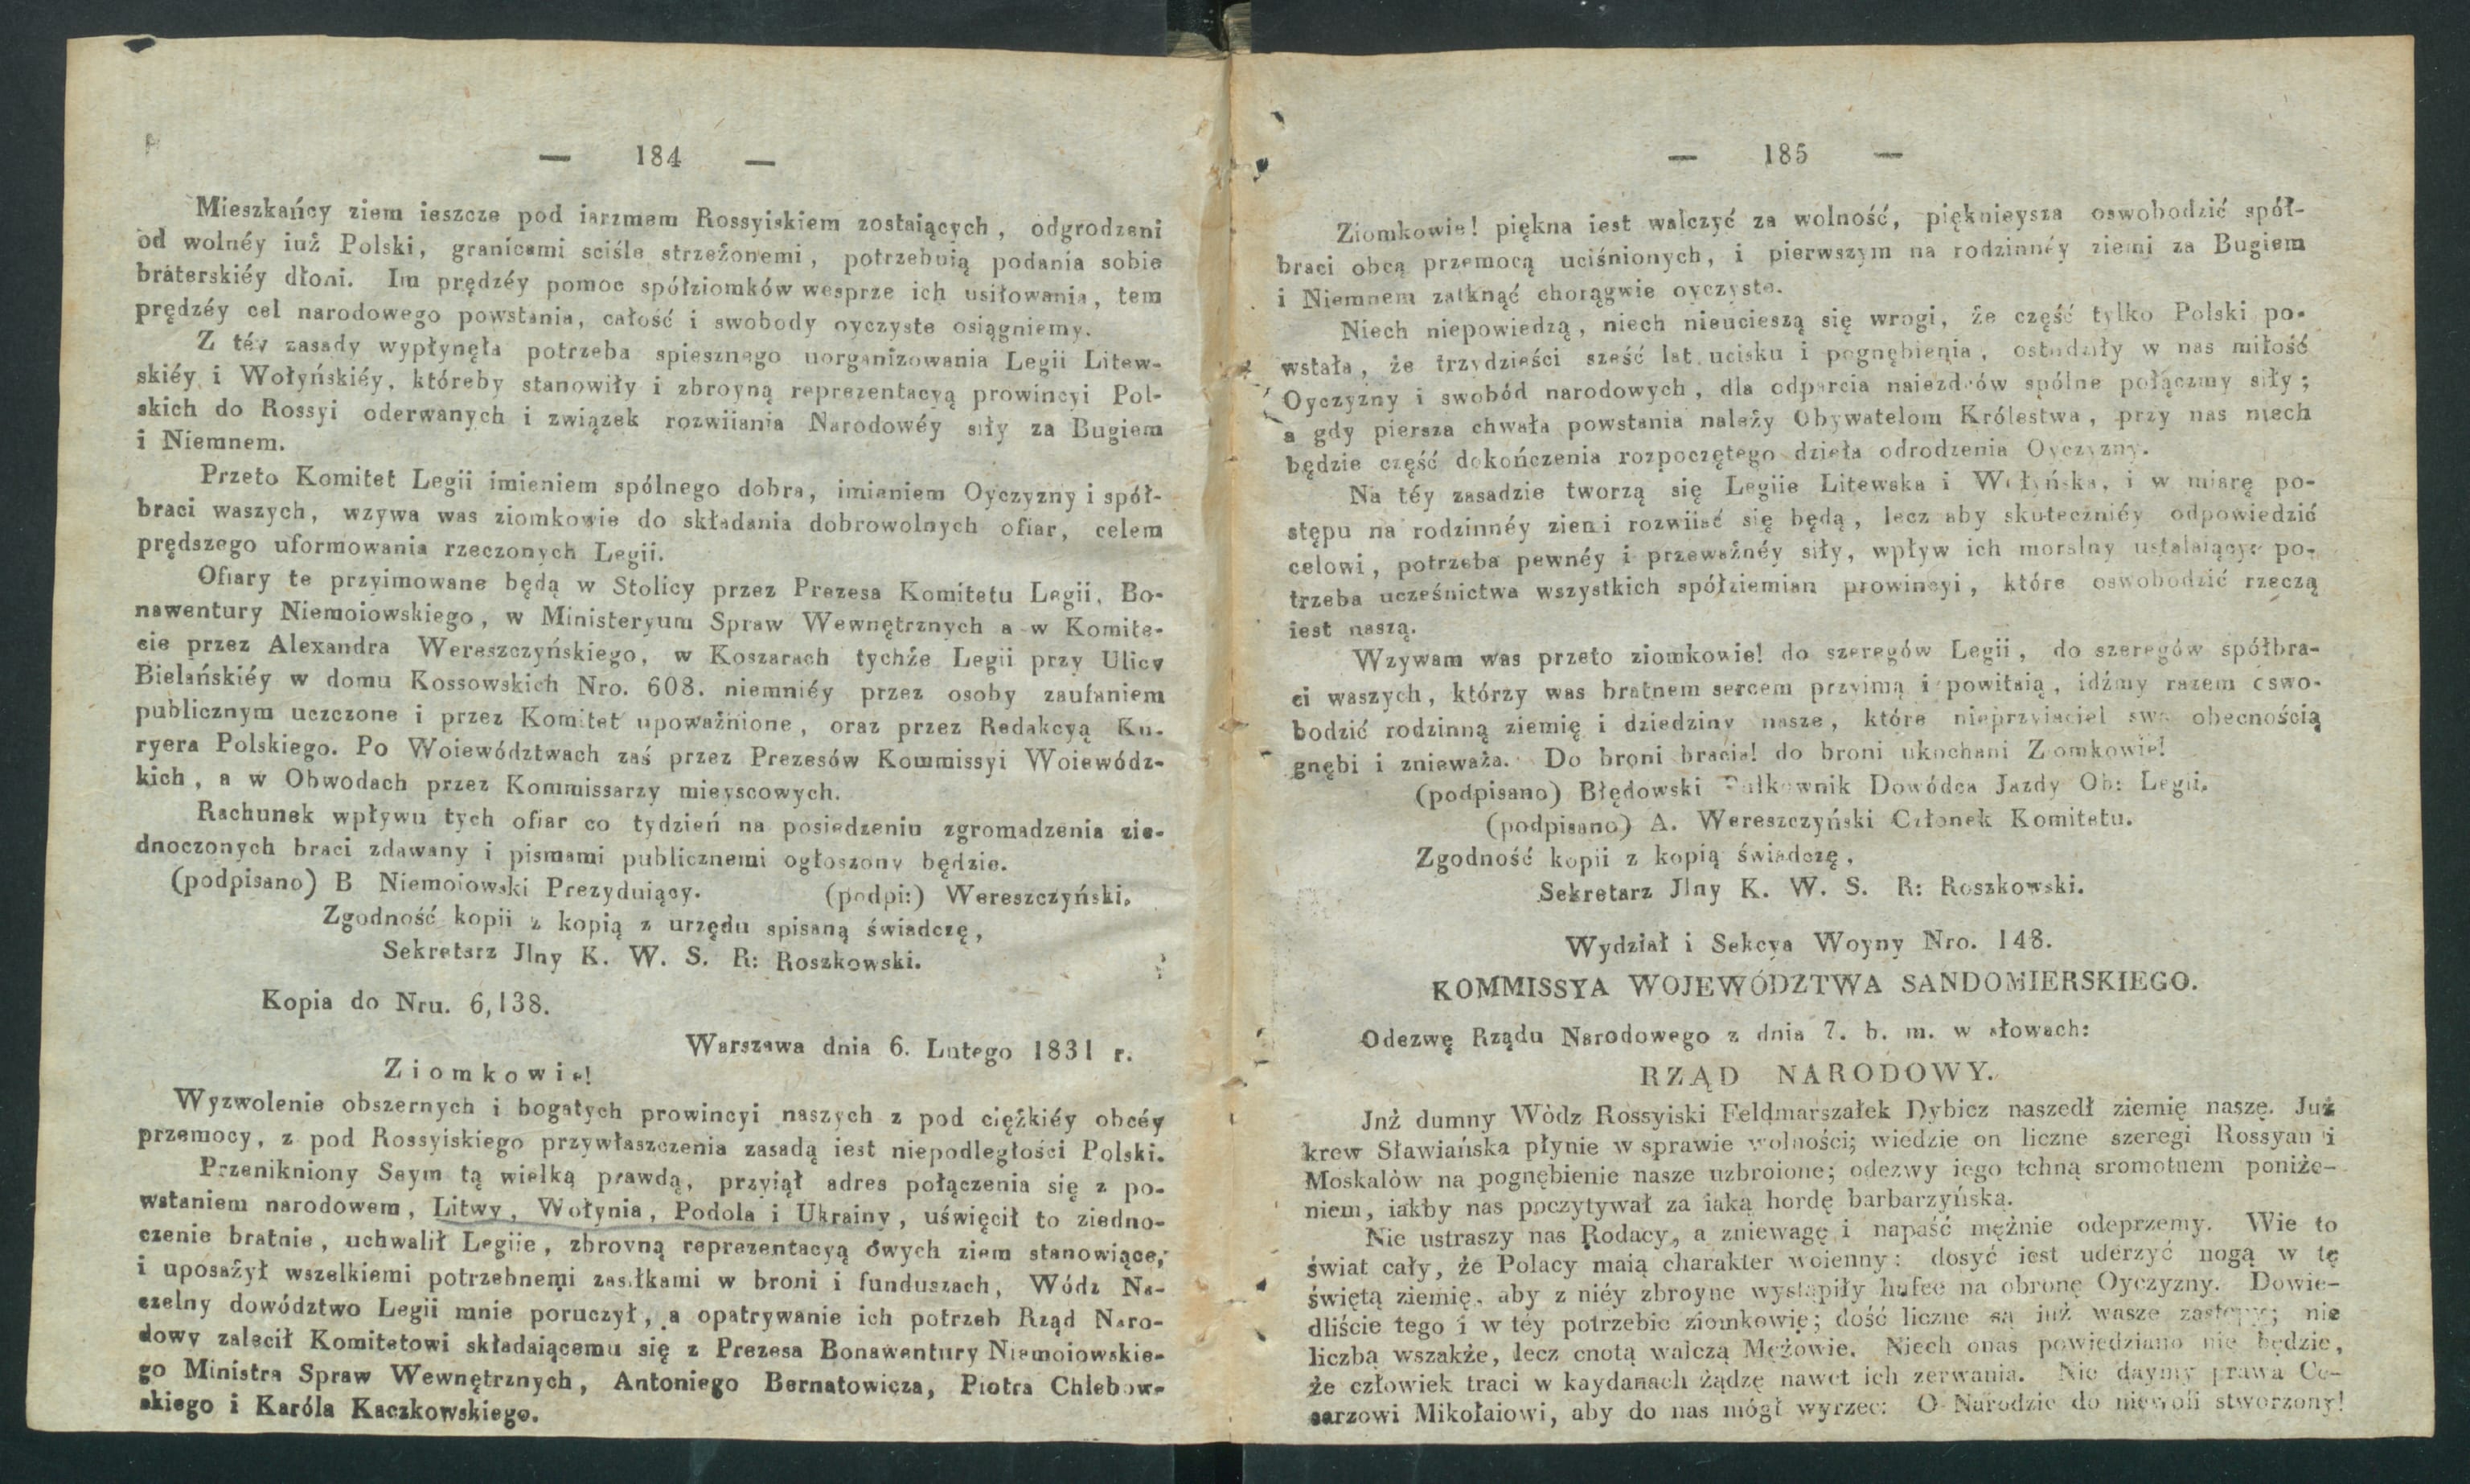 — 184 —
Mieszkańcy ziem ieszcze pod iarzmem Rossyiskiem zostaiących, odgrodzeni
od wolnéy iuż Polski, granicami sciśle strzeżonemi, potrzebuią podania sobie
braterskiéy dłoni. Im prędzéy pomoc spółziomków wesprze ich usiłowania, tem
prędzéy cel narodowego powstania, całość i swobody oyczyste osiągniemy.
Z téy zasady wypłynęła potrzeba spiesznego uorganizowania Legii Litew-
skiéy i Wołyńskiéy, któreby stanowiły i zbroyną reprezentacyą prowincyi Pol-
skich do Rossyi oderwanych i związek rozwiiania Narodowéy siły za Bugiem
i Niemnem.
Przeto Komitet Legii imieniem spólnego dobra, imieniem Oyczyzny i spół-
braci waszych, wzywa was ziomkowie do składania dobrowolnych ofiar, celem
prędszego uformowania rzeczonych Legii.
Ofiary te przyimowane będą w Stolicy przez Prezesa Komitetu Legii, Bo-
nawentury Niemoiowskiego, w Ministeryum Spraw Wewnętrznych a w Komite-
cie przez Alexandra Wereszczyńskiego, w Koszarach tychże Legii przy Ulicy
Bielańskiéy w domu Kossowskich Nro. 608. niemniéy przez osoby zaufaniem
publicznym uczczone i przez Komitet upoważnione, oraz przez Redakcyą Ku-
ryera Polskiego. Po Woiewództwach zaś przez Prezesów Kommissyi Woiewódz-
kich, a w Obwodach przez Kommissarzy mieyscowych.
Rachunek wpływu tych ofiar co tydzień na posiedzeniu zgromadzenia zie-
dnoczonych braci zdawany i pismami publicznemi ogłoszony będzie.
(podpisano) B Niemoiowski Prezyduiący. (podpi:) Wereszczyński.
Zgodność kopii z kopią z urzędu spisaną świadczę,
Sekretarz Jlny K. W. S. R: Roszkowski.
Kopia do Nru. 6,138.
Warszawa dnia 6. Lutego 1831 r.
Ziomkowie!
Wyzwolenie obszernych i bogatych prowincyi naszych z pod ciężkiéy obcéy
przemocy, z pod Rossyiskiego przywłaszczenia zasadą iest niepodległości Polski.
Przenikniony Seym tą wielką prawdą, przyiął adres połączenia się z po-
wstaniem narodowem, Litwy, Wołynia, Podola i Ukrainy, uświęcił to ziedno-
czenie bratnie, uchwalił Legiie, zbroyną reprezentacyą ówych ziem stanowiące,
i uposażył wszelkiemi potrzebnemi zasiłkami w broni i funduszach, Wódz Na-
czelny dowództwo Legii mnie poruczył, a opatrywanie ich potrzeb Rząd Naro-
dowy zalecił Komitetowi składaiącemu się z Prezesa Bonawentury Niemoiowskie-
go Ministra Spraw Wewnętrznych, Antoniego Bernatowicza, Piotra Chlebow-
skiego i Karóla Kaczkowskiego.
— 185 —
Ziomkowie! piękna iest walczyć za wolność, pięknieysza oswobodzić spół-
braci obcą przemocą uciśnionych, i pierwszym na rodzinnéy ziemi za Bugiem
i Niemnem zatknąć chorągwie oyczyste.
Niech niepowiedzą, niech nieucieszą się wrogi, że część tylko Polski po-
wstała, że trzydzieści sześć lat ucisku i pognębienia, ostudziły w nas miłość
Oyczyzny i swobód narodowych, dla odparcia naiezdców spólne połączmy siły;
a gdy piersza chwała powstania należy Obywatelom Królestwa, przy nas niech
będzie część dokończenia rozpoczętego dzieła odrodzenia Oyczyzny.
Na téy zasadzie tworzą się Legiie Litewska i Wołyńska, i w miarę po-
stępu na rodzinnéy ziemi rozwiiać się będą, lecz aby skuteczniéy odpowiedzić
celowi, potrzeba pewnéy i przeważnéy siły, wpływ ich moralny ustalaiącyc po-
trzeba ucześnictwa wszystkich spółziemian prowincyi, które oswobodzić rzeczą
iest naszą.
Wzywam was przeto ziomkowie! do szeregów Legii, do szeregów spółbra-
ci waszych, którzy was bratnem sercem przyimą i powitaią, idźmy razem oswo-
bodzić rodzinną ziemię i dziedziny nasze, które nieprzyiaciel swą obecnością
gnębi i znieważa. Do broni bracia! do broni ukochani Ziomkowie!
(podpisano) Błędowski Pułkownik Dowódca Jazdy Ob: Legii.
(podpisano) A. Wereszczyński Członek Komitetu.
Zgodność kopii z kopią świadczę,
Sekretarz Jlny K. W. S. R: Roszkowski.
Wydział i Sekcya Woyny Nro. 148.
KOMMISSYA WOJEWÓDZTWA SANDOMIERSKIEGO.
Odezwę Rządu Narodowego z dnia 7. b. m. w słowach:
RZĄD NARODOWY.
Jnż dumny Wòdz Rossyiski Feldmarszałek Dybicz naszedł ziemię naszę. Już
krew Sławiańska płynie w sprawie wolności; wiedzie on liczne szeregi Rossyan i
Moskalòw na pognębienie nasze uzbroione; odezwy iego tchną sromotnem poniże-
niem, iakby nas poczytywał za iaką hordę barbarzyńską.
Nie ustraszy nas Rodacy, a zniewagę i napaść mężnie odeprzemy. Wie to
świat cały, że Polacy maią charakter woienny: dosyć iest uderzyć nogą w tę
świętą ziemię, aby z niéy zbroyne wystąpiły hufce na obronę Oyczyzny. Dowie-
dliście tego i w téy potrzebie ziomkowie; dość liczne są już wasze zastępy; nie
liczbą wszakże, lecz cnotą walczą Mężowie. Niech onas powiedziano nie będzie,
że człowiek traci w kaydanach żądzę nawet ich zerwania. Nie daymy prawa Ce-
sarzowi Mikołaiowi, aby do nas mógł wyrzec: O Narodzie do niewoli stworzony!